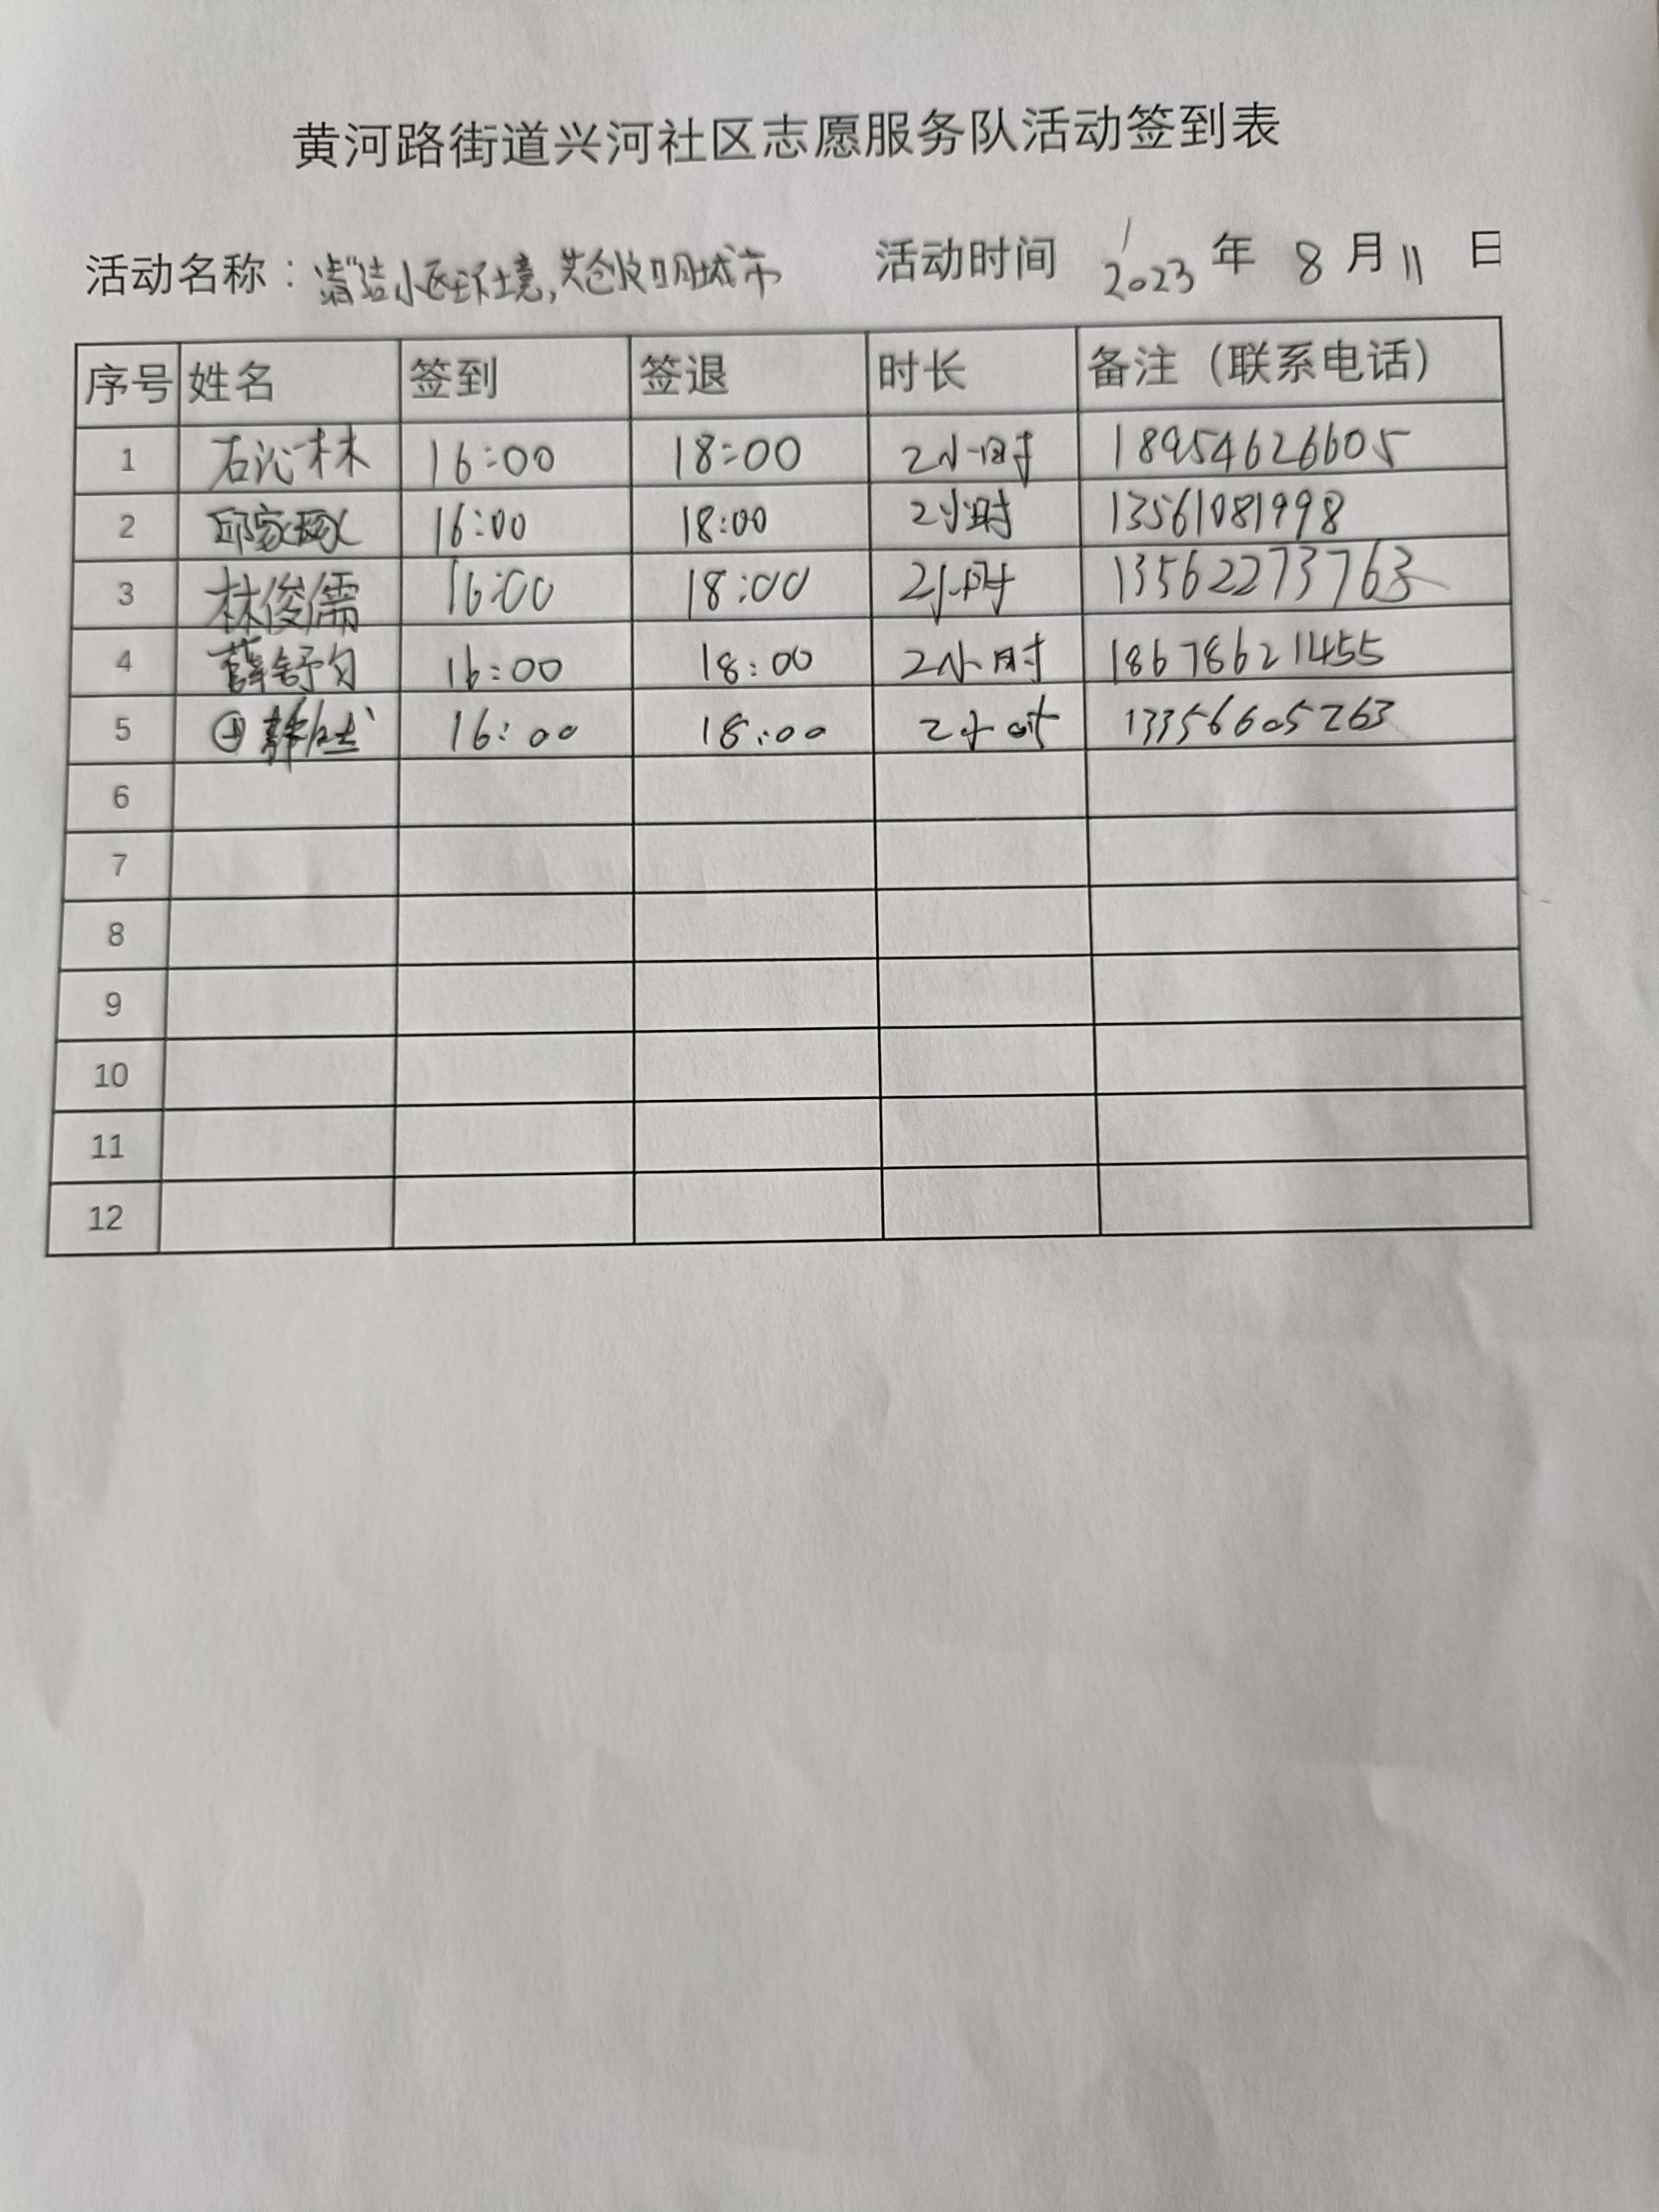 黄河路街道兴河社区志愿服务队活动签到表
活动名称：清洁小区环境,共创文明城市 活动时间 2023 年 8 月 11 日
序号 姓名 签到 签退 时长 备注（联系电话）
1 石沁林 16:00 18:00 2小时 18954626605
2 邱家 16:00 18:00 2小时 13561081998
3 林俊儒 16:00 18:00 2小时 13562273763
4 薛舒匀 16:00 18:00 2小时 18678621455
5 16:00 18:00 2小时 13356605263
6
7
8
9
10
11
12